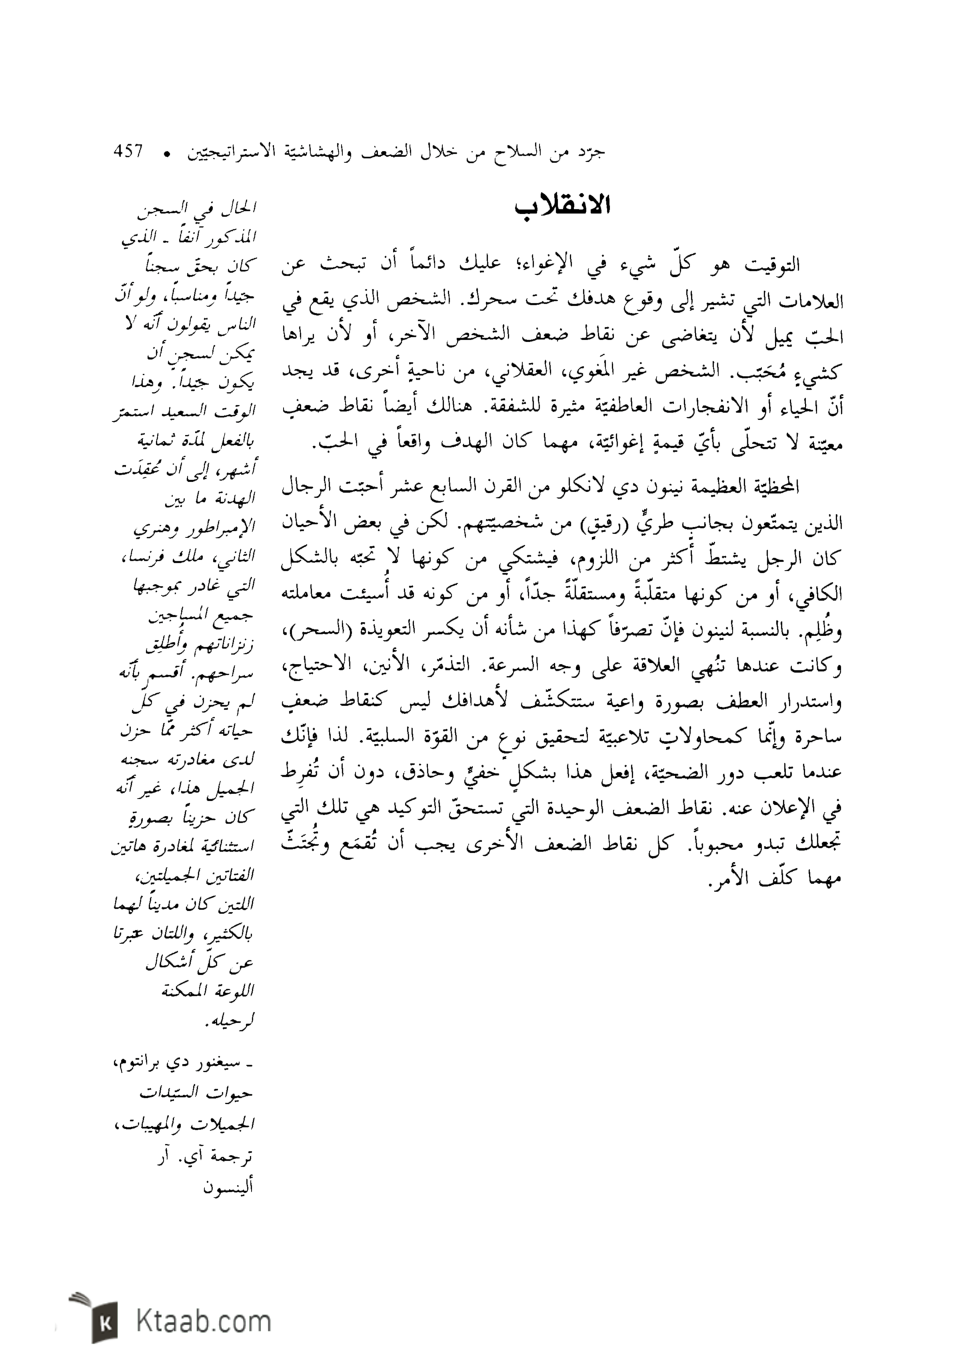 جرّد من السلاح من خلال الضعف والهشاشيّة الاستراتيجيّين • 457
الانقلاب
التوقيت هو كلّ شيء في الإغواء؛ عليك دائماً أن تبحث عن
العلامات التي تشير إلى وقوع هدفك تحت سحرك. الشخص الذي يقع في
الحبّ يميل لأن يتغاضى عن نقاط ضعف الشخص الآخر، أو لأن يراها
كشيءٍ مُحَبّب. الشخص غير المَغوي، العقلاني، من ناحيةٍ أخرى، قد يجد
أنّ الحياء أو الانفجارات العاطفيّة مثيرة للشفقة. هنالك أيضاً نقاط ضعفٍ
معيّنة لا تتحلّى بأيّ قيمةٍ إغوائيّة، مهما كان الهدف واقعاً في الحبّ.
المحظيّة العظيمة نينون دي لانكلو من القرن السابع عشر أحبّت الرجال
الذين يتمتّعون بجانبٍ طريٍّ (رقيقٍ) من شخصيّتهم. لكن في بعض الأحيان
كان الرجل يشتطّ أكثر من اللزوم، فيشتكي من كونها لا تحبّه بالشكل
الكافي، أو من كونها متقلّبةً ومستقلّةً جدّاً، أو من كونه قد أُسيئت معاملته
وظُلِم. بالنسبة لنينون فإنّ تصرّفاً كهذا من شأنه أن يكسر التعويذة (السحر)،
وكانت عندها تنُهي العلاقة على وجه السرعة. التذمّر، الأنين، الاحتياج،
واستدرار العطف بصورة واعية ستتكشّف لأهدافك ليس كنقاط ضعفٍ
ساحرة وإنّما كمحاولاتٍ تلاعبيّة لتحقيق نوعٍ من القوّة السلبيّة. لذا فإنّك
عندما تلعب دور الضحيّة، إفعل هذا بشكلٍ خفيٍّ وحاذق، دون أن تُفرِط
في الإعلان عنه. نقاط الضعف الوحيدة التي تستحقّ التوكيد هي تلك التي
تجعلك تبدو محبوباً. كل نقاط الضعف الأخرى يجب أن تُقمَع وتُجتَثّ
مهما كلّف الأمر.
الحال في السجن
المذكور آنفاً ـ الذي
كان بحقّ سجناً
جيّداً ومناسباً، ولو أنّ
الناس يقولون أنّه لا
يمكن لسجنٍ أن
يكون جيّداً. وهذا
الوقت السعيد استمرّ
بالفعل لمدّة ثمانية
أشهر، إلى أن عُقِدَت
الهدنة ما بين
الإمبراطور وهنري
الثاني، ملك فرنسا،
التي غادر بموجبها
جميع المساجين
زنزاناتهم وأُطلِق
سراحهم. أقسم بأنّه
لم يحزن في كلّ
حياته أكثر ممّا حزن
لدى مغادرته سجنه
الجميل هذا، غير أنّه
كان حزيناً بصورةٍ
استثنائية لمغادرة هاتين
الفتاتين الجميلتين،
اللتين كان مديناً لهما
بالكثير، واللتان عبّرتا
عن كلّ أشكال
اللوعة الممكنة
لرحيله.
ـ سيغنور دي برانتوم،
حيوات السيّدات
الجميلات والمهيبات،
ترجمة آي. آر
ألينسون
K Ktaab.com